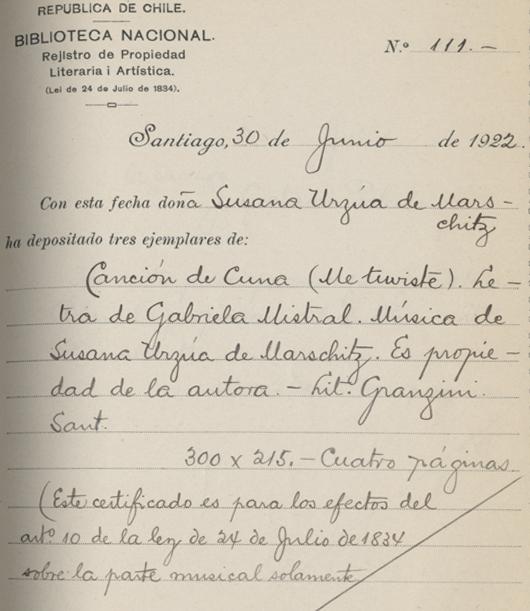 REPUBLICA DE CHILE.
BIBLIOTECA NACIONAL.
Rejistro de Propiedad
Literaria i Artística.
(Lei de 24 de Julio de 1834).
N.o 111.-
Santiago, 30 de Junio de 1922.
Con esta fecha doña Susana Urzúa de Mars-
chitz
ha depositado tres ejemplares de:
Canción de Cuna (Me tuviste). Le-
tra de Gabriela Mistral. Música de
Susana Urzúa de Marschitz. Es propie-
dad de la autora. - Lit. Granzini.
Sant.
300 x 215. - Cuatro páginas
(Este certificado es para los efectos del
arto 10 de la ley de 24 de Julio de 1834
sobre la parte musical solamente